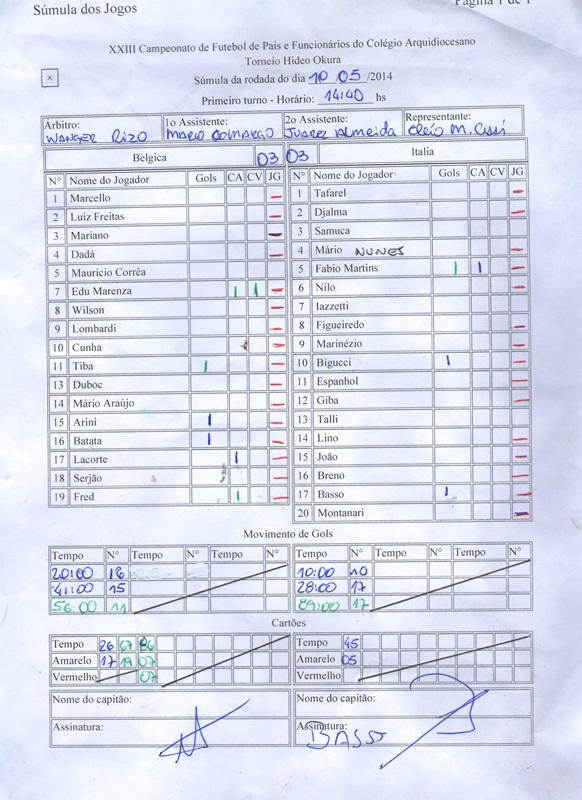 Súmula dos Jogos
Pagina 1 de 1
XXIII Campeonato de Futebol de Pais e Funcionários do Colégio Arquidiocesano
Torneio Hideo Okura
x Súmula da rodada do dia 10 05 /2014
Primeiro turno - Horário: 14:40 hs
Árbitro: 1o Assistente: 2o Assistente: Representante:
WANGER RIZO MARIO CAMARGO JUAREZ Almeida
Belgica 03 03 Italia
N° Nome do Jogador Gols CA CV JG N° Nome do Jogador Gols CA CV JG
1 Marcello 1 Tafarel
2 Luiz Freitas 2 Djalma
3 Mariano 3 Samuca
4 Dadá 4 Mário NUNES
5 Mauricio Corrêa 5 Fabio Martins
7 Edu Marenza 6 Nilo
8 Wilson 7 Iazzetti
9 Lombardi 8 Figueiredo
10 Cunha 9 Marinézio
11 Tiba 10 Bigucci
13 Duboc 11 Espanhol
14 Mário Araújo 12 Giba
15 Arini 13 Talli
16 Batata 14 Lino
17 Lacorte 15 João
18 Serjão 16 Breno
19 Fred 17 Basso
20 Montanari
Movimento de Gols
Tempo N° Tempo N° Tempo N° Tempo N° Tempo N° Tempo N°
20:00 16 10:00 10
41:00 15 28:00 17
56:00 11 89:00 17
Cartões
Tempo 26 67 86 Tempo 45
Amarelo 17 19 07 Amarelo 05
Vermelho 07 Vermelho
Nome do capitão: Nome do capitão:
Assinatura: Assinatura:
BASSO